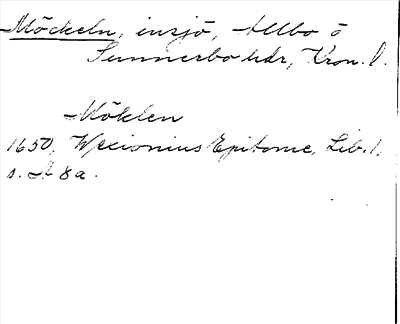 Möckeln, insjö, Allbo o
Sunnerbo hdr, Kron. l.
Möklen
1650, Wexionius Epitome, Lib. 1,
s. A 8 a.